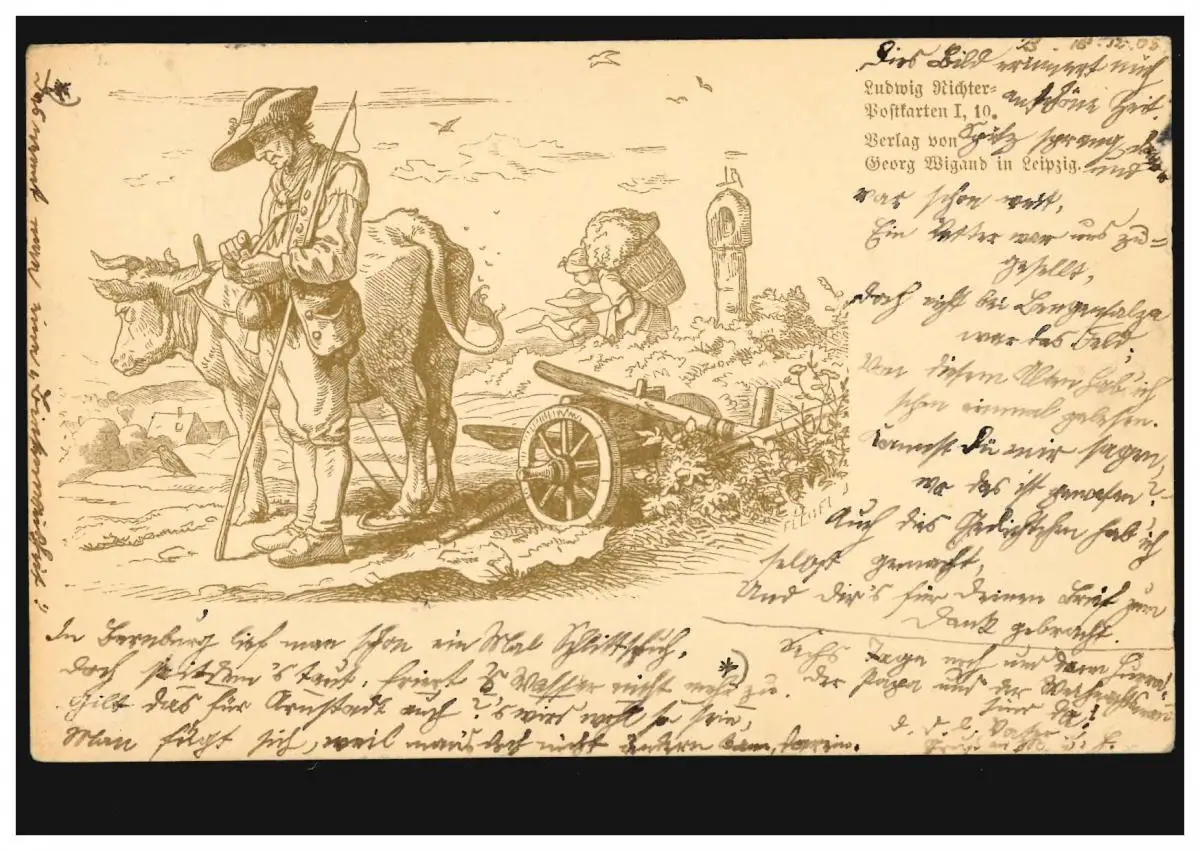 18.12.05
Dies Bild erinnert mich
Ludwig Richter-
Postkarten I, 10.
an schöne Zeit.
Verlag von
Georg Wigand in Leipzig.
Spitz sprang
und
war schon weit,
Ein Vetter war uns zu-
gesellt,
doch nicht bei Langensalza
war das Feld.
Von diesem Allem hab' ich
schon einmal gelesen.
Kannst Du mir sagen,
wo das ist gewesen?
Auch dies Gedichtchen hab' ich
selbst gemacht,
Und dir's für Deinen Brief zum
Dank gebracht.
In Bernburg lief man schon ein Mal Schlittschuh,
doch seitdem's taut, friert's Wasser nicht mehr zu.
Gilt das für Arnstadt auch? 's wird wohl so sein,
Man fügt sich, weil man's doch nicht ändern kann, darein.
Sechs Tage noch und dann Hurra!
Der Papa und der Weihnachtsmann
sind da!
d. d. l. Vater